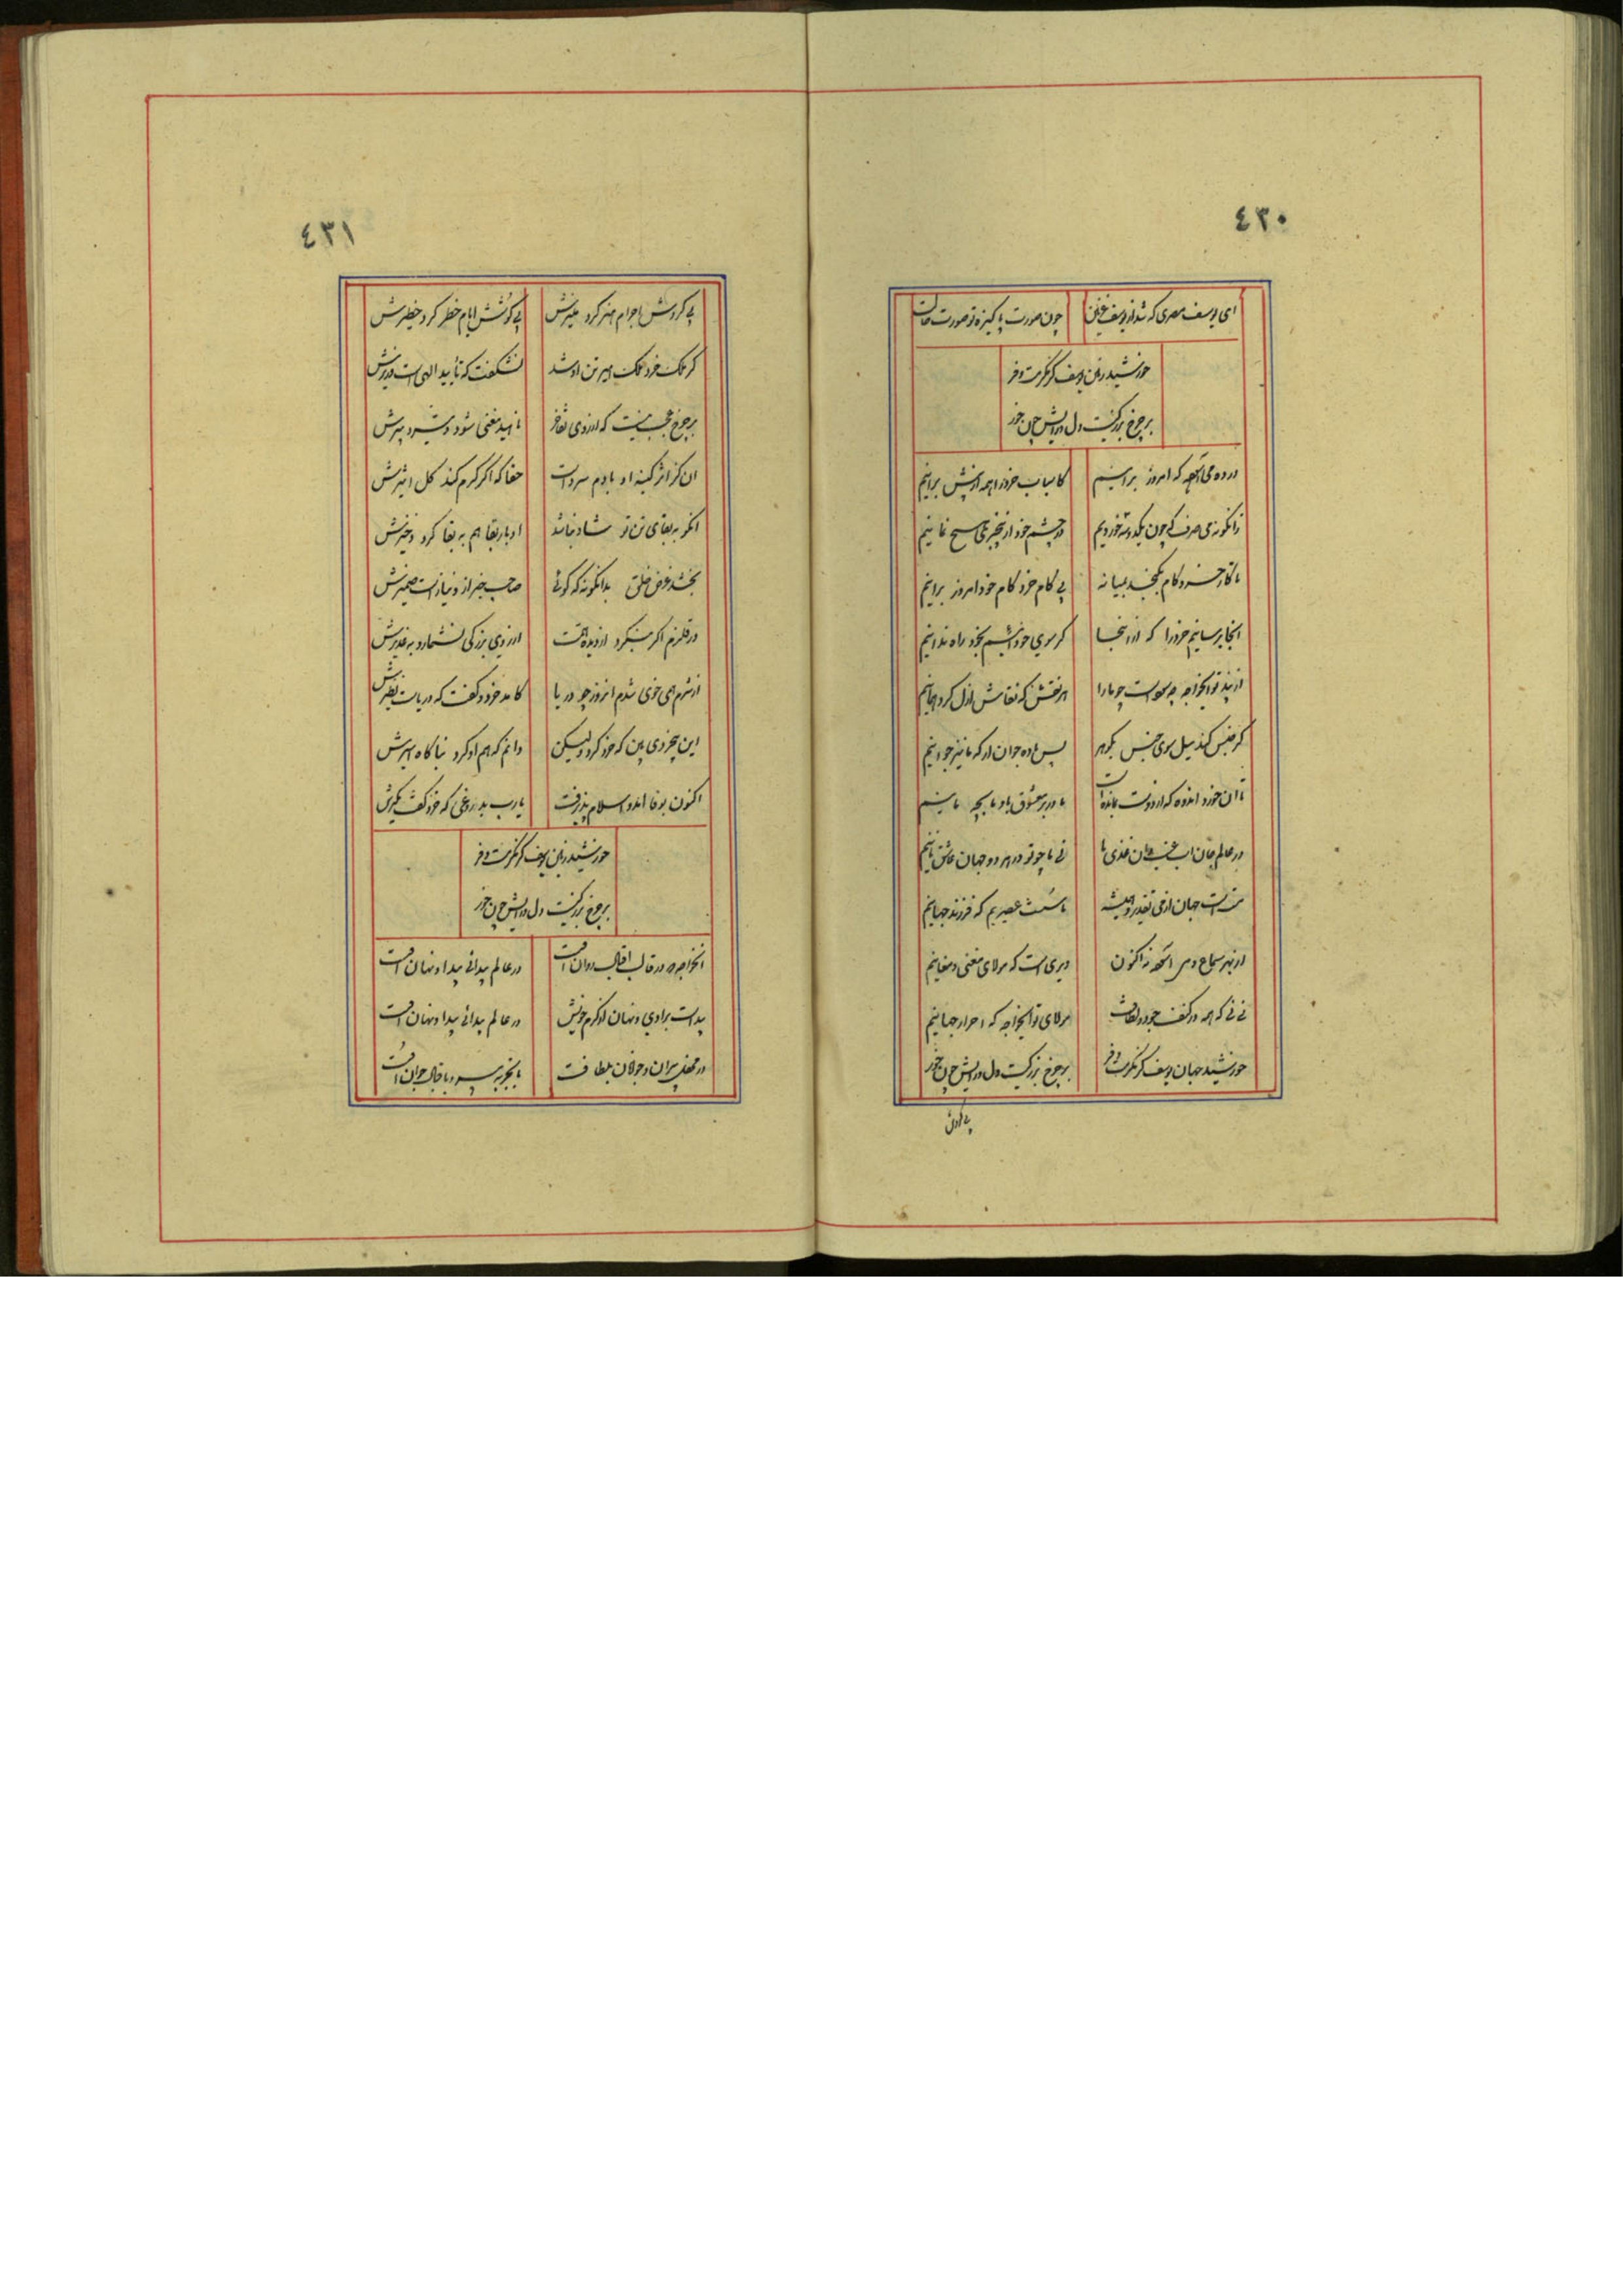 ٤٣٠
ای یوسف مصری که شد از یوسف چون صورت پاکیزه تو صورت
خورشید زمین یوسف کز مکرمت و فر
بر چرخ بزرگیست دل و رایش چون خور
در ده می که امروز برانیم کاسباب خرد را همه از پیش برانیم
زانگونه می صرف که چون یکدو سه خوردیم در چشم خود از بیخبری هیچ نمانیم
تا کار خرد کام بی کام خرد کام خود امروز برانیم
آنجا برسانیم خرد را که از آنجا گر سوی خود آئیم بخود راه ندانیم
از پند تو ایخواجه چه سود است چو ما را هر نقش که نقاش ازل کرد همانیم
گر جنس کند میل سوی جنس بگوهر پس باده جوان آر که ما نیز جوانیم
تا آن خورد اندوه که از دوست بمانده است ما در بر معشوق
در عالم جان نی ما چو تو در هر دو جهان عاشق نانیم
مست است جهان از می ما مست عصیریم که فرزند جهانیم
از بهر سماع و می دیری است که مولای مغنی و مغانیم
نی نی که همه در کنف جود و لطافت مولای تو ایخواجه که احرار جهانیم
خورشید جهان یوسف کز مکرمت و فر بر چرخ بزرگیست دل و رایش چون خور
٤٣١
بی گردش اجرام هنر کرد بی کوشش ایام خطر کرد خطیرش
گر ملک خرد ملک او شد نشگفت که تأیید الهی است وزیرش
بر چرخ عجب نیست که از روی تفاخر ناهید مغنی شود و تیر دبیرش
آن کز اثر کینه او با دم سرد است حقا که اگر گرم کند کل اثیرش
آنکو به بقای تن تو شاد نباشد ادبار بقا هم به بقا کرد
بخشد غرض خلق بدانگونه که گوئی صاحب خبر از و نیاز است ضمیرش
در قلزم اگر بنگرد از دیده همت از روی بزرگی نشمارد به غدیرش
از شرم خوی شدم امروز چو دریا کامد خرد و گفت که دریاست نظیرش
این بیخردی بین که خرد کرد ولیکن دانم که هم او کرد نباگاه
اکنون بوفا اندر اسلام پذیرفت یارب بدروغی که خرد گفت مگیرش
خورشید زمین یوسف کز مکرمت و فر
بر چرخ بزرگیست دل و رایش چون خور
ایخواجه در قالب اقبال روان است در عالم پیدائی پیدا و نهان است
پیداست برادی و نهان از کرم خویش در عالم پیدائی پیدا و نهان است
در محفل پیران و جوانان بلطافت با تجربه پیر و با جوان است